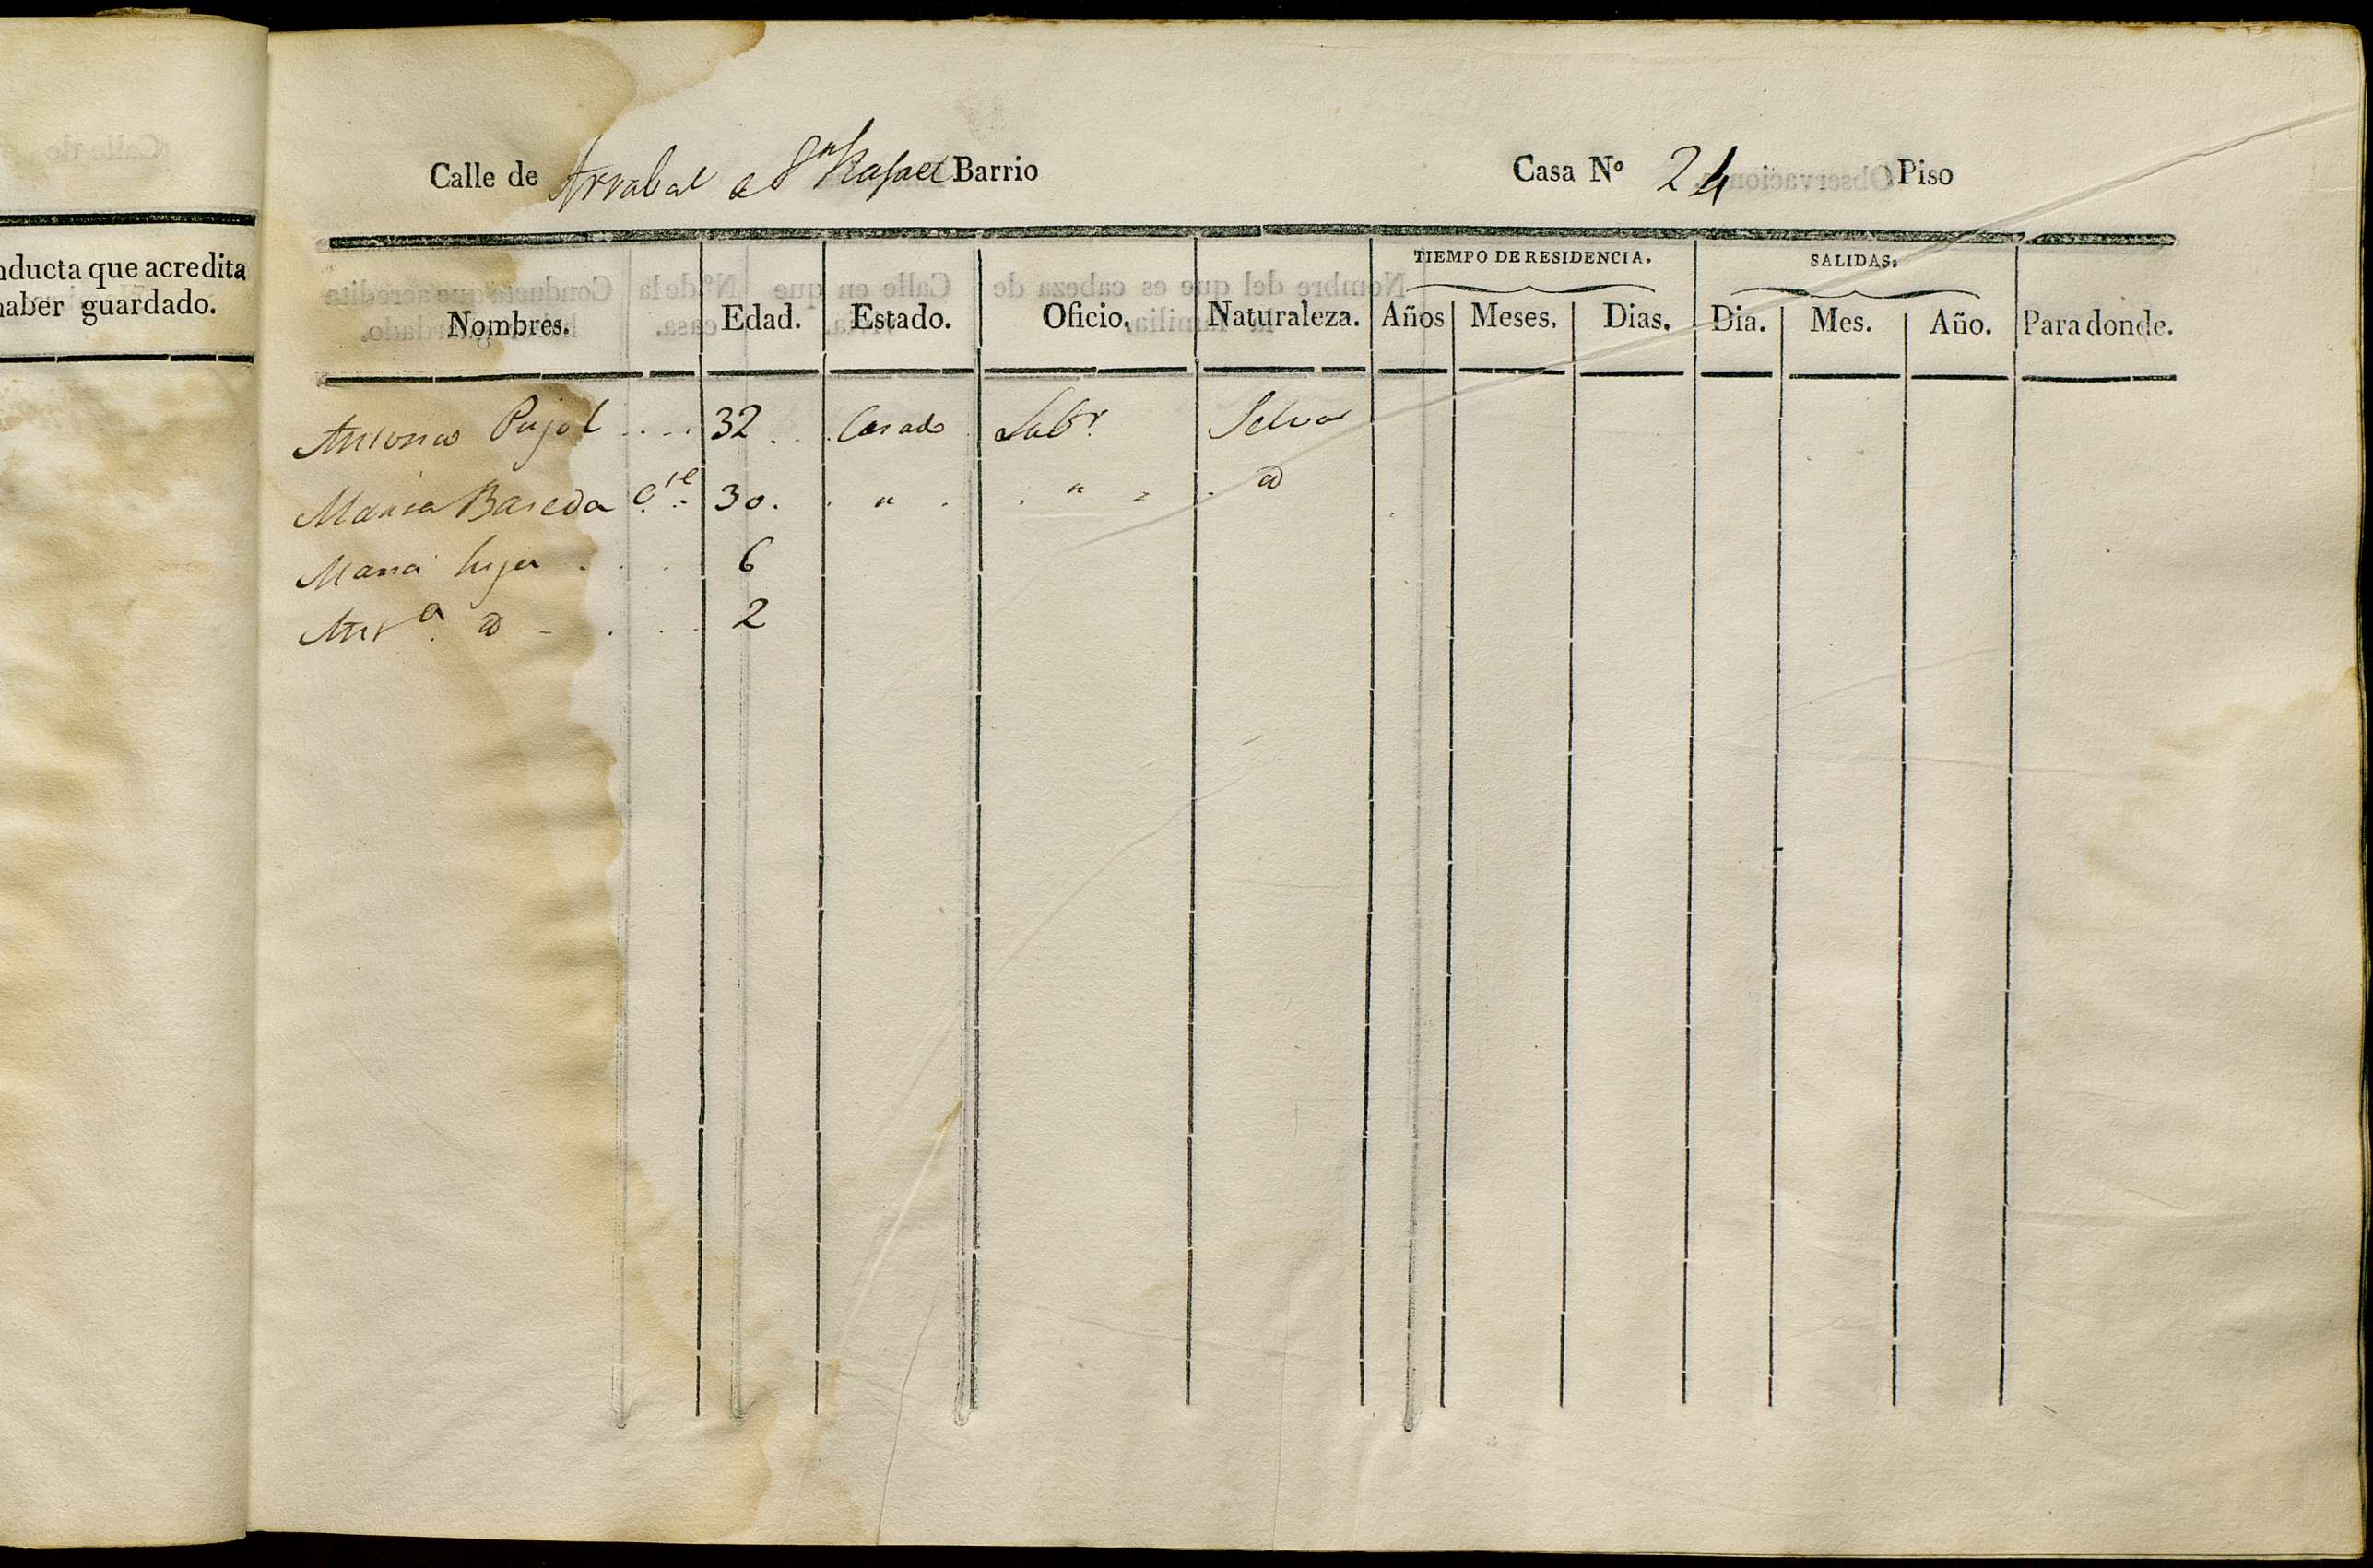 nducta que acredita
haber guardado.
Calle de Arrabal a Sn Rafael Barrio Casa Nº 24 Piso
TIEMPO DE RESIDENCIA. SALIDAS.
Nombres. Edad. Estado. Oficio. Naturaleza. Años Meses. Dias. Dia. Mes. Año. Para donde.
Antonio Pujol .... 32 .. Casado Labr. Selva
Maria Baseda 30. " "
Maria hija ... 6
Anta. 2